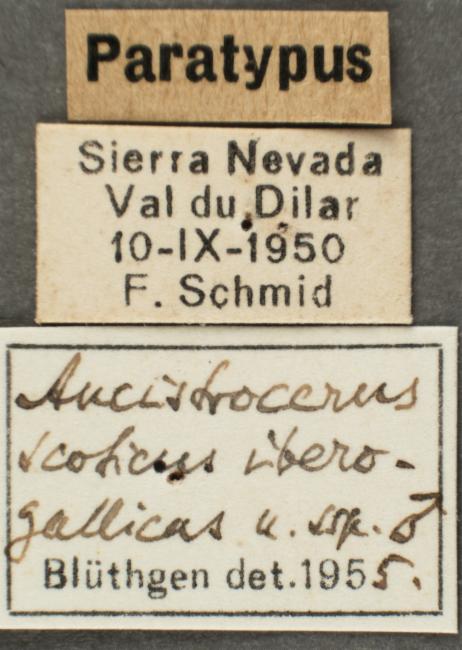 Paratypus
Sierra Nevada
Val du Dilar
10-IX-1950
F. Schmid
Ancistrocerus
scoticus ibero-
gallicus n. ssp. ♂
Blüthgen det. 1955.